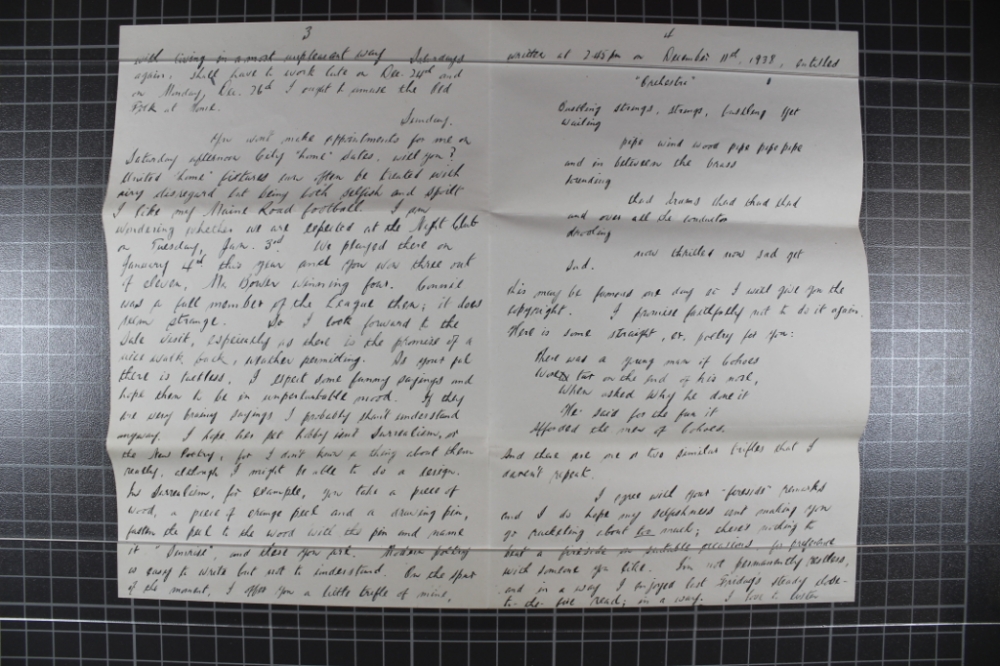 3
with living in a most unpleasant way. Saturdays
again, shall have to work late on Dec. 24th and
on Monday, Dec. 26th I ought to amuse the Old
Folk at Home.
Sunday.
You won't make appointments for me on
Saturday afternoon City 'home' dates, will you?
United 'home' fixtures can often be treated with
airy disregard but being both selfish and spoilt
I like my Maine Road football. I am
wondering whether we are expected at the Night Club
on Tuesday, Jan. 3rd. We played there on
January 4th this year and you won three out
of eleven, Mr. Bower winning four. Connie
was a full member of the League then; it does
seem strange. So I look forward to the
date visit, especially as there is the promise of a
nice walk back, weather permitting. As your pal
there is tactless, I expect some funny sayings and
hope then to be in imperturbable mood. If they
are very brainy sayings I probably shan't understand
anyway. I hope her pet hobby isn't Surrealism, or
the New Poetry, for I don't know a thing about them
really, although I might be able to do a design.
In Surrealism, for example, you take a piece of
wood, a piece of orange peel and a drawing pin,
fasten the peel to the wood with the pin and name
it "Sunrise", and there you are. Modern poetry
is easy to write but not to understand. On the spur
of the moment, I offer you a little trifle of mine,
4
written at 3.45pm on December 11th, 1938, entitled
"Orchestra"
Bustling strings, strings, bustling yet
waiting
pipe wind wood pipe pipe pipe
and in between the brass
sounding
thud drums thud thud thud
and over all the conductor
now thrilled now sad yet
Sad.
this may be famous one day so I will give you the
copyright. I promise faithfully not to do it again.
Here is some straight, or, poetry for you:
There was a young man of Cohoes
Wore tar on the end of his nose,
When asked why he done it
He said for the fun it
Afforded the men of Cohoes.
And there are one or two similar trifles that I
daren't repeat.
I agree with your "fireside" remarks
and I do hope my selfishness isn't making you
go racketing about too much; there's nothing to
beat a fireside on suitable occasions, for preference
with someone you like. I'm not permanently restless,
and in a way I enjoyed last Friday's steady
read; in a way. I love to listen